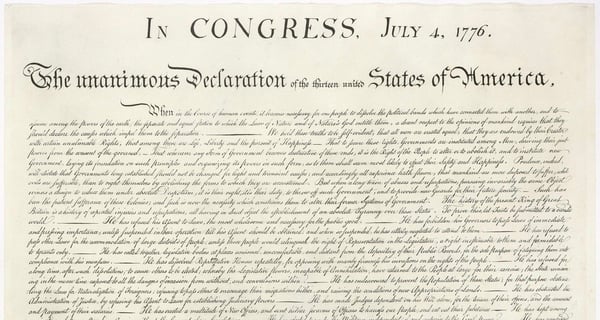 IN CONGRESS, JULY 4, 1776.
The unanimous Declaration of the thirteen united States of America,
When in the Course of human events, it becomes necessary for one people to dissolve the political bands which have connected them with another, and to
assume among the powers of the earth, the separate and equal station to which the Laws of Nature and of Nature's God entitle them, a decent respect to the opinions of mankind requires that they
should declare the causes which impel them to the separation. We hold these truths to be self-evident, that all men are created equal, that they are endowed by their Creator
with certain unalienable Rights, that among these are Life, Liberty and the pursuit of Happiness.— That to secure these rights, Governments are instituted among Men, deriving their just
powers from the consent of the governed,— That whenever any Form of Government becomes destructive of these ends, it is the Right of the People to alter or to abolish it, and to institute new
Government, laying its foundation on such principles and organizing its powers in such form, as to them shall seem most likely to effect their Safety and Happiness. Prudence, indeed,
will dictate that Governments long established should not be changed for light and transient causes; and accordingly all experience hath shewn, that mankind are more disposed to suffer, while
evils are sufferable, than to right themselves by abolishing the forms to which they are accustomed. But when a long train of abuses and usurpations, pursuing invariably the same Object
evinces a design to reduce them under absolute Despotism, it is their right, it is their duty, to throw off such Government, and to provide new Guards for their future security.— Such has
been the patient sufferance of these Colonies; and such is now the necessity which constrains them to alter their former Systems of Government. The history of the present King of Great
Britain is a history of repeated injuries and usurpations, all having in direct object the establishment of an absolute Tyranny over these States. To prove this, let Facts be submitted to a candid
world. He has refused his Assent to Laws, the most wholesome and necessary for the public good. He has forbidden his Governors to pass Laws of immediate
and pressing importance, unless suspended in their operation till his Assent should be obtained; and when so suspended, he has utterly neglected to attend to them. He has refused to
pass other Laws for the accommodation of large districts of people, unless those people would relinquish the right of Representation in the Legislature, a right inestimable to them and formidable
to tyrants only. He has called together legislative bodies at places unusual, uncomfortable, and distant from the depository of their Public Records, for the sole purpose of fatiguing them into
compliance with his measures. He has dissolved Representative Houses repeatedly, for opposing with manly firmness his invasions on the rights of the people. He has refused for
a long time, after such dissolutions, to cause others to be elected; whereby the Legislative powers, incapable of Annihilation, have returned to the People at large for their exercise; the State remain-
ing in the mean time exposed to all the dangers of invasion from without, and convulsions within. He has endeavoured to prevent the population of these States; for that purpose obstruct-
ing the Laws for Naturalization of Foreigners; refusing to pass others to encourage their migrations hither, and raising the conditions of new Appropriations of Lands. He has obstructed the
Administration of Justice, by refusing his Assent to Laws for establishing Judiciary powers. He has made Judges dependent on his Will alone, for the tenure of their offices, and the amount
and payment of their salaries. He has erected a multitude of New Offices, and sent hither swarms of Officers to harrass our people, and eat out their substance. He has kept